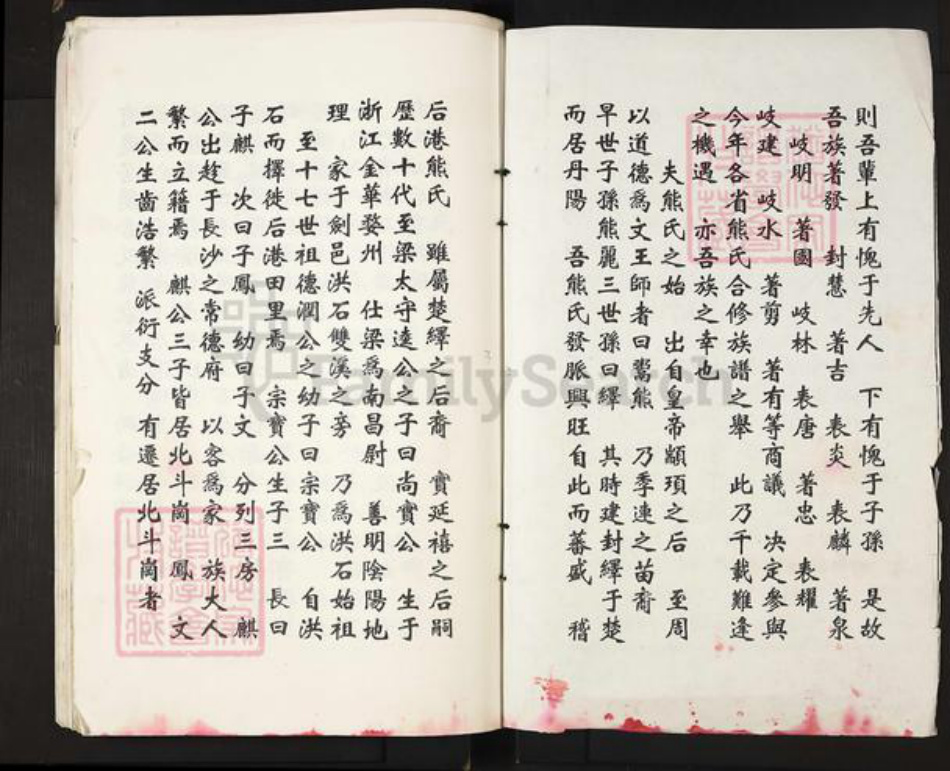 則吾輩上有愧于先人 下有愧于子孫 是故
吾族著發 封慧 著吉 表炎 表麟 著泉
岐明 著國 岐林 表唐 著忠 表耀
岐建 岐水 著剪 著有等商議 决定參與
今年各省熊氏合修族譜之舉 此乃千載難逢
之機遇 亦吾族之幸也
夫熊氏之始 出自皇帝顓頊之后 至周
以道德爲文王師者曰鬻熊 乃季連之苗裔
早世子孫熊麗三世孫曰繹 其時建封繹于楚
而居丹陽 吾熊氏發脈興旺自此而蕃盛 稽
后港熊氏 雖屬楚繹之后裔 實延禧之后嗣
歷數十代至梁太守逵公之子曰尚實公 生于
浙江金華婺州 仕梁爲南昌尉 善明陰陽地
理 家于劍邑洪石雙溪之旁 乃爲洪石始祖
至十七世祖德潤公之幼子曰宗寶公 自洪
石而擇徙后港田里焉 宗寶公生子三 長曰
子麒 次曰子鳳 幼曰子文 分列三房 麒
公出趁于長沙之常德府 以客爲家 族大人
繁而立籍焉 麒公三子皆居北斗崗 鳳 文
二公生齒浩繁 派衍支分 有遷居北斗崗者
FamilySearch